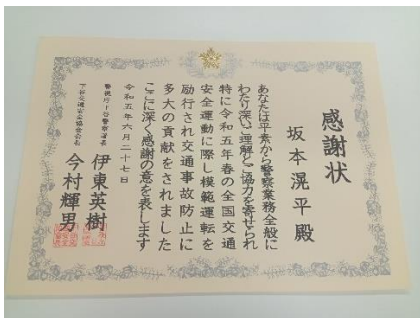 感謝状
坂本滉平殿
あなたは平素から警察業務全般に
わたり深いご理解とご協力を寄せられ
特に令和五年春の全国交通
安全運動に際し模範運転を
励行され交通事故防止に
多大の貢献をされました
ここに深く感謝の意を表します
令和五年六月二十七日
警視庁下谷警察署長 伊東英樹
下谷交通安全協会会長 今村輝男